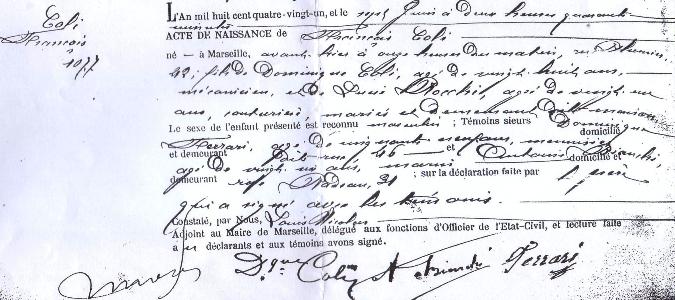 Coli
François
1077
L'An mil huit cent quatre-vingt-un, et le sept Juin à deux heures quarante
minutes
ACTE DE NAISSANCE de François Coli
né — à Marseille, avant-hier à onze heures du matin, rue
42, fils de Dominique Coli, agé de vingt huit ans,
mécanicien, et de Lucie Rocchi, agée de vingt un
ans, couturière, mariés et demeurant
Le sexe de l'enfant présenté est reconnu masculin ; Témoins sieurs Dominique
Ferrari, agé de cinquante neuf ans, menuisier domicilié
et demeurant 46 et Antoine Bianchi, domicilié et
agé de vingt un ans, marin
demeurant rue Nadeau, 31 ; sur la déclaration faite par le père
qui a signé avec les témoins.
Constaté, par Nous, Louis Nicolas
Adjoint au Maire de Marseille, délégué aux fonctions d'Officier de l'Etat-Civil, et lecture faite
a les déclarants et aux témoins avons signé.
Dque Coli A Bianchi Ferrari